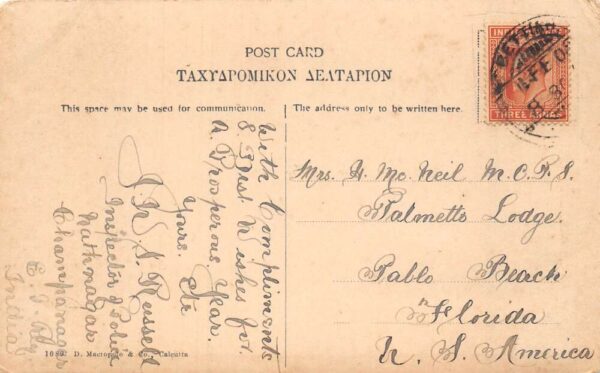 POST CARD
ΤΑΧΥΔΡΟΜΙΚΟΝ ΔΕΛΤΑΡΙΟΝ
This space may be used for communication.
The address only to be written here.
With Compliments
& Best Wishes for
A Prosperous Year.
Yours.
Etc
J. W. S. Russeld
Inspector of Police
Nathnagar
Champanagar
E. I. Ry
India
Mrs. H. Mc. Neil M. C. P. S.
Palmetto Lodge.
Pablo Beach
Florida
N. S. America
THREE ANNAS
D. Macropolo & Co., Calcutta